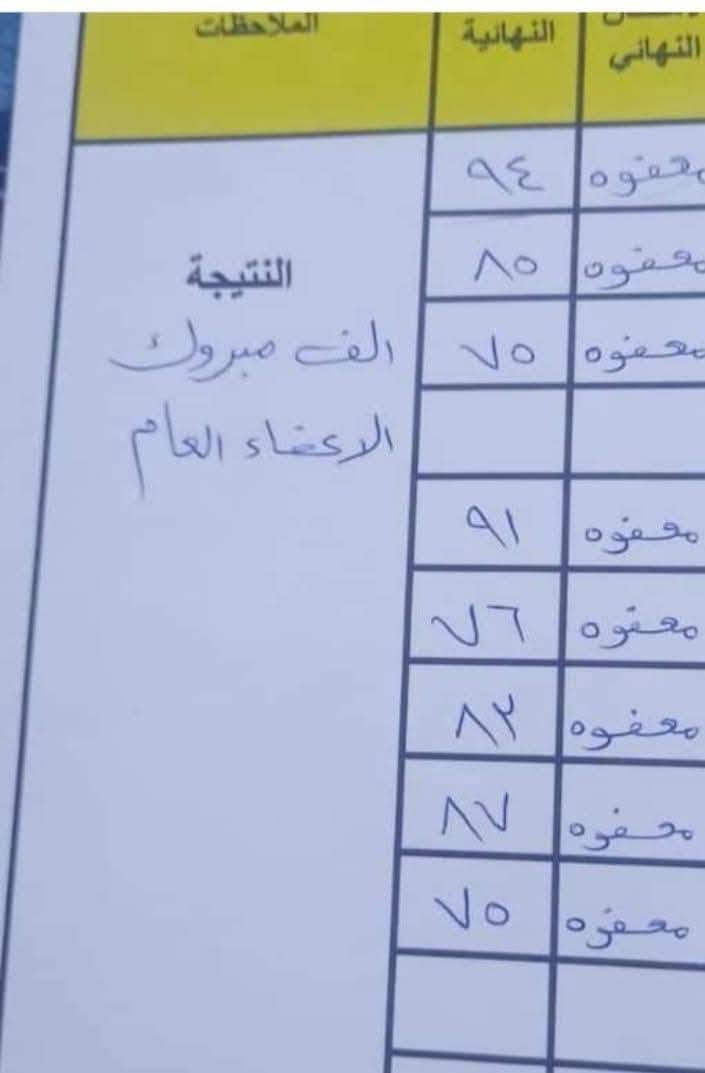 النهائي النهائية الملاحظات
معفوه ٩٤
معفوه ٨٥
معفوه ٧٥
معفوه ٩١
معفوه ٧٦
معفوه ٨٢
معفوه ٨٧
معفوه ٧٥
النتيجة
الف مبروك
الاعفاء العام